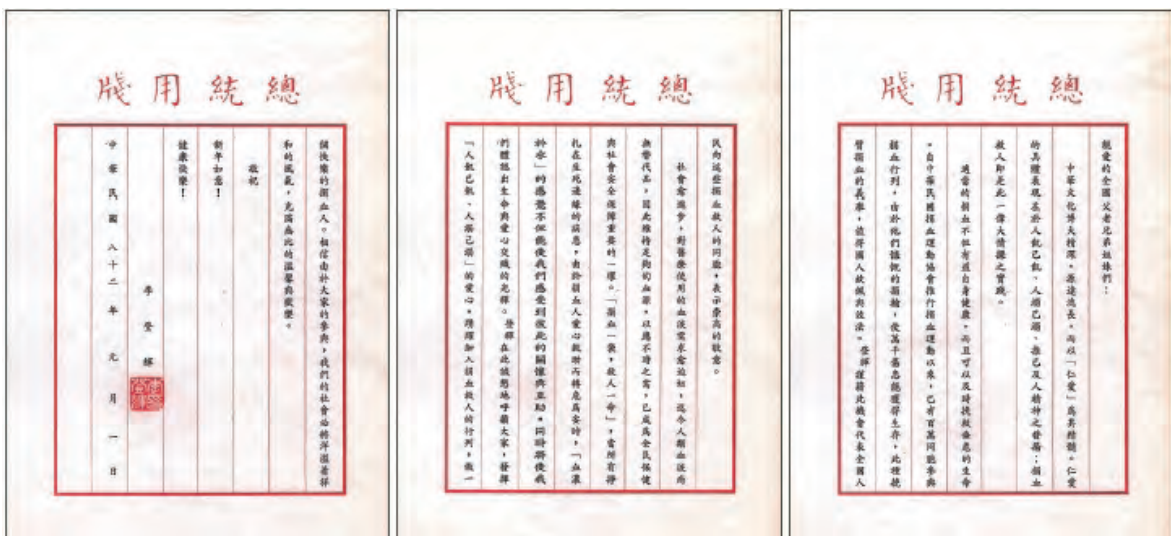 總統用牋
親愛的全國父老兄弟姐妹們:
中華文化博大精深,源遠流長,而以「仁愛」為其精髓。仁愛
的具體表現在於人飢己飢、人溺己溺、推己及人精神之發揚;捐血
救人即是此一偉大情操之實踐。
適當的捐血不但有益自身健康,而且可以及時挽救垂危的生命
。自中華民國捐血運動協會推行捐血運動以來,已有百萬同胞參與
捐血行列,由於他們慷慨的捐輸,使萬千傷患能獲得生存,此種挽
臂捐血的義舉,值得國人欽佩與效法。登輝謹藉此機會代表全國人
總統用牋
民向這些捐血救人的同胞,表示崇高的敬意。
社會愈進步,對醫療使用的血液需求愈迫切,迄今人類血液尚
無替代品,因此維持足夠的血源,以應不時之需,已成為全民保健
與社會安全保障重要的一環。「捐血一袋,救人一命」,當所有掙
扎在生死邊緣的病患,由於捐血人愛心救助而轉危為安時,「血濃
於水」的感覺不但能使我們感受到彼此的關懷與互助,同時將使我
們體認出生命與愛心交織的光輝。登輝在此誠懇地呼籲大家,發揮
「人飢己飢、人溺己溺」的愛心,踴躍加入捐血救人的行列,做一
總統用牋
個快樂的捐血人。相信由於大家的參與,我們的社會必將洋溢著祥
和的風氣,充滿無比的溫馨與歡樂。
敬祝
新年如意!
健康快樂!
李登輝
中華民國八十二年元月一日